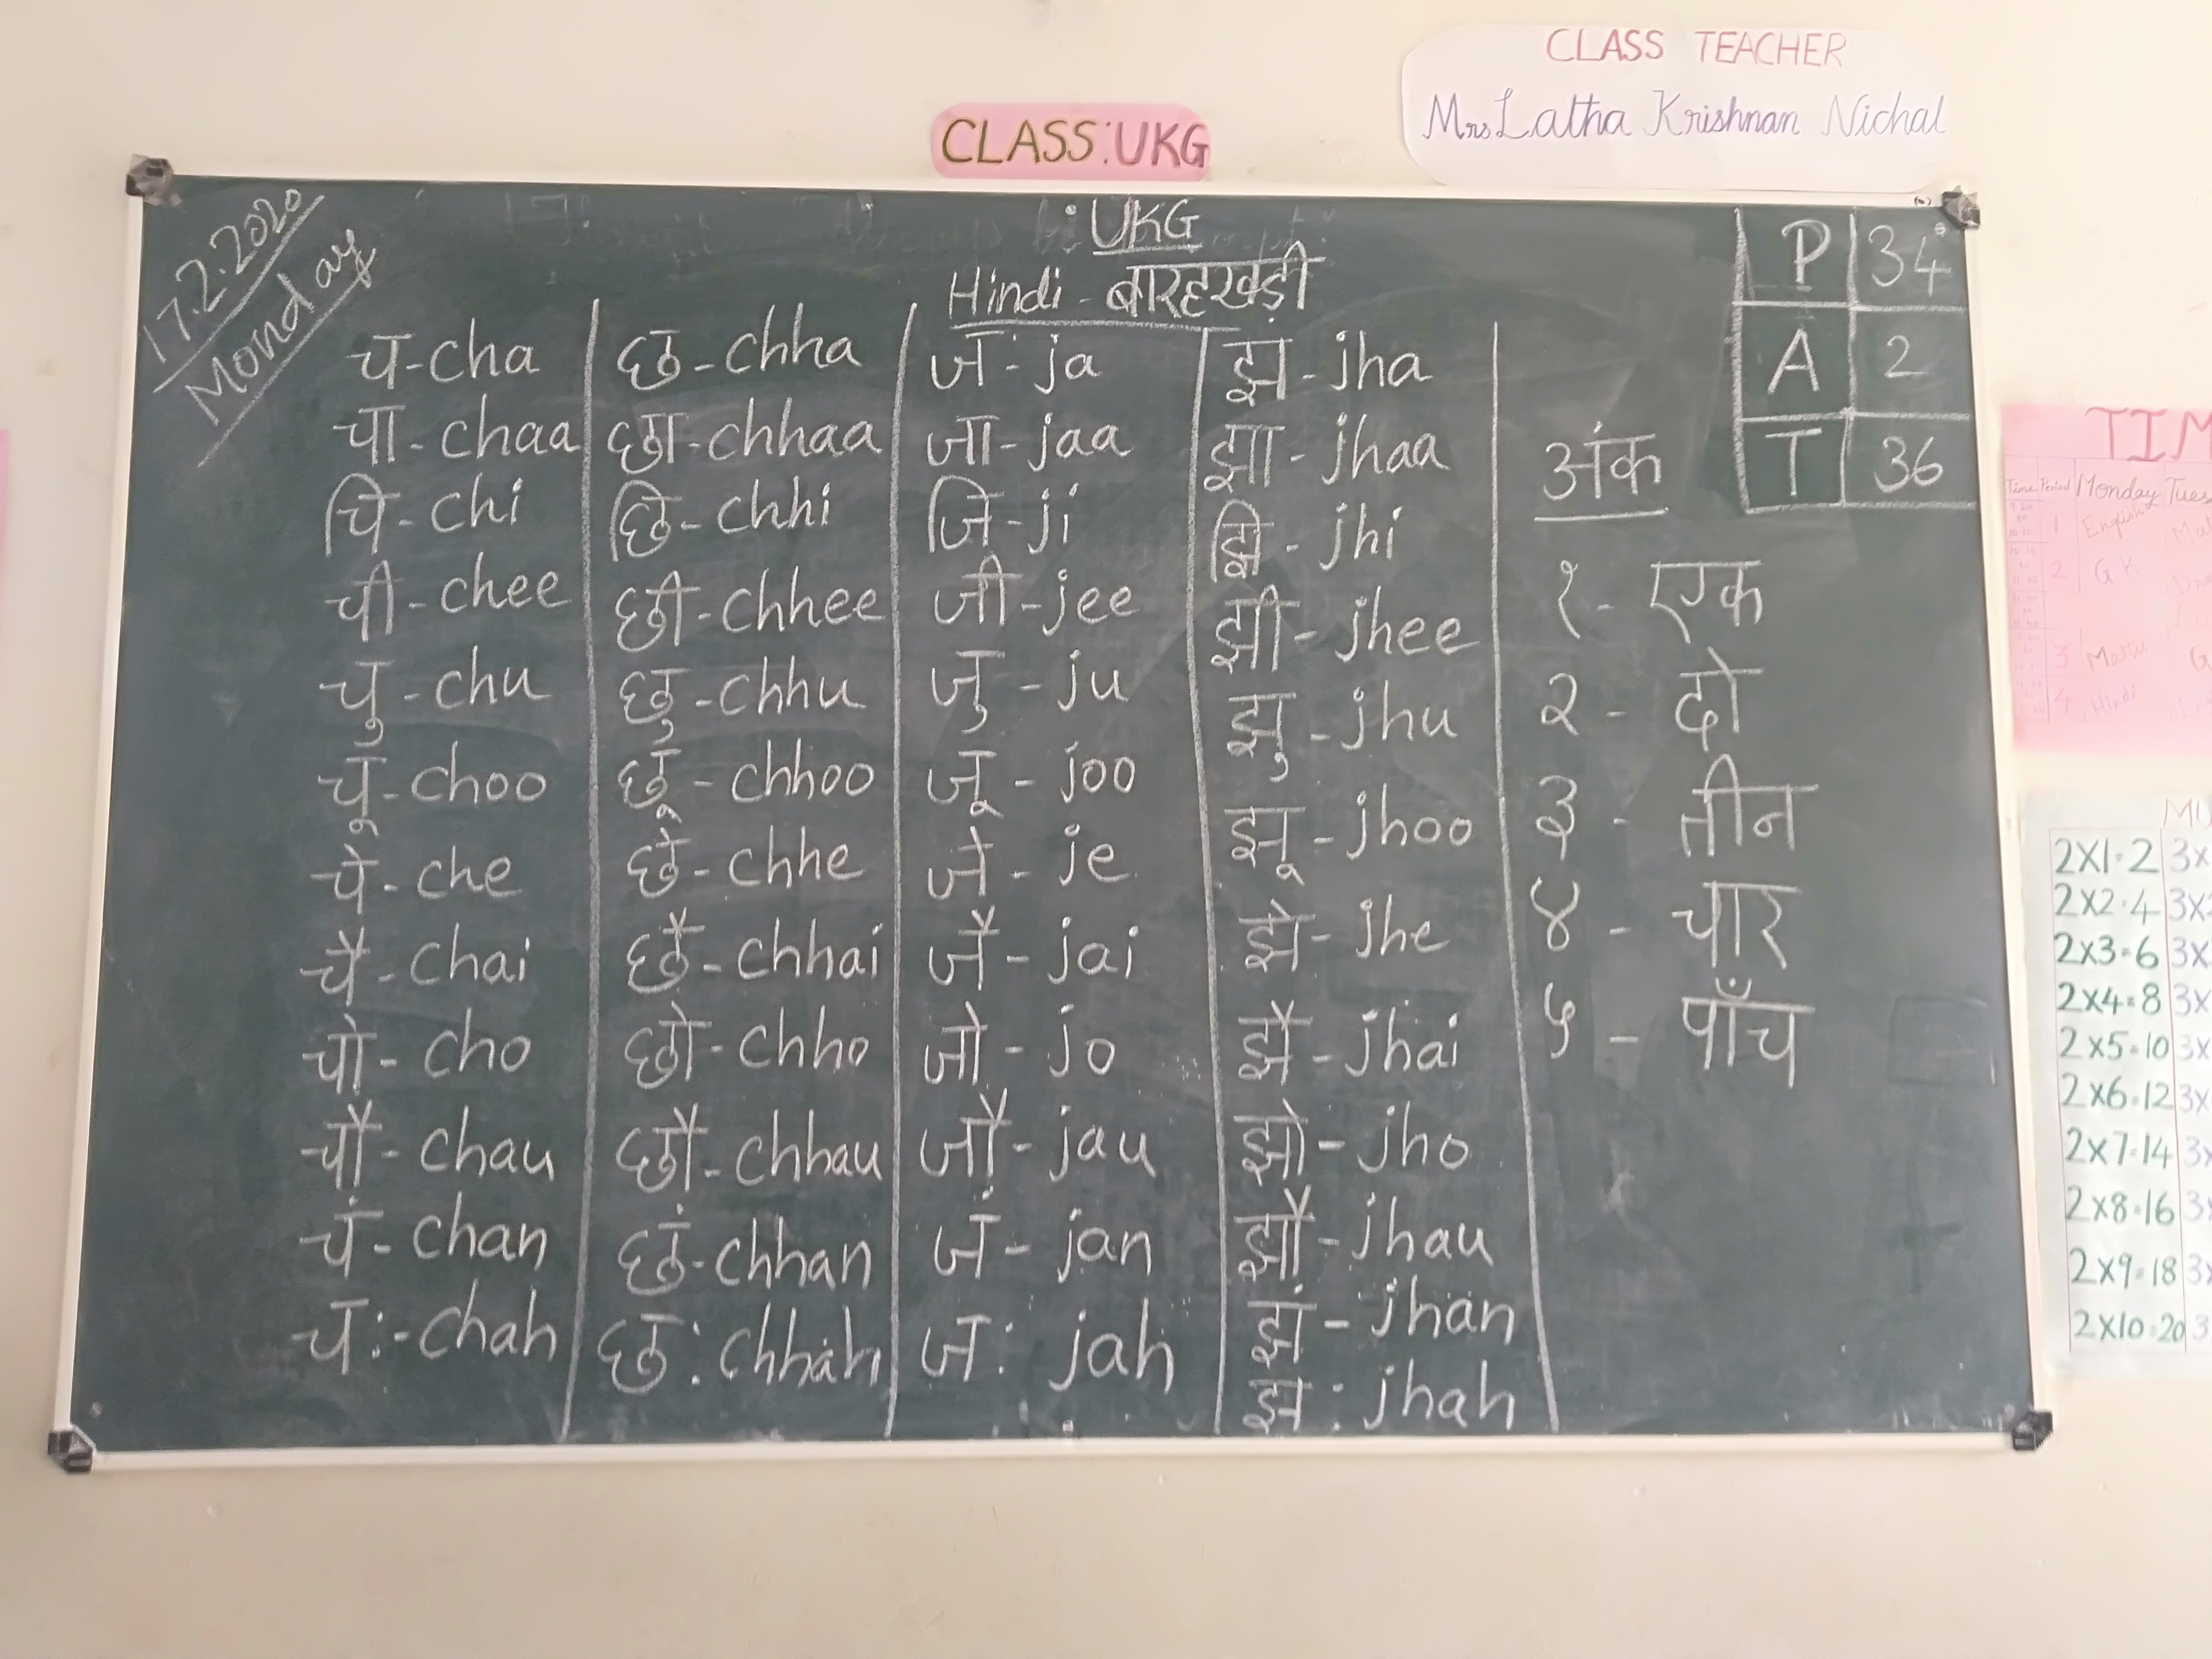 CLASS TEACHER
Mrs Latha Krishnan Nichal
CLASS:UKG
17.2.2020
Monday
UKG
Hindi - बारहखड़ी
च-cha
चा-chaa
चि-chi
ची-chee
चु-chu
चू-choo
चे-che
चै-chai
चो-cho
चौ-chau
चं-chan
च:-chah
छ-chha
छा-chhaa
छि-chhi
छी-chhee
छु-chhu
छू-chhoo
छे-chhe
छै-chhai
छो-chho
छौ-chhau
छं-chhan
छ: chhah
ज-ja
जा-jaa
जि-ji
जी-jee
जु-ju
जू-joo
जे-je
जै-jai
जो-jo
जौ-jau
जं-jan
ज: jah
झ-jha
झा-jhaa
झि-jhi
झी-jhee
झु-jhu
झू-jhoo
झे-jhe
झै-jhai
झो-jho
झौ-jhau
झं-jhan
झ: jhah
अंक
१- एक
२ - दो
३ - तीन
४ - चार
५ - पाँच
P 34
A 2
T 36
TIM
Time Period Monday Tues
1 English
2 GK
3 G
4 Hindi
2X1=2 3x
2X2=4 3x
2x3=6 3x
2x4=8 3x
2x5=10 3x
2x6=12 3x
2x7=14 3x
2x8=16 3
2x9=18 3x
2x10=20 3